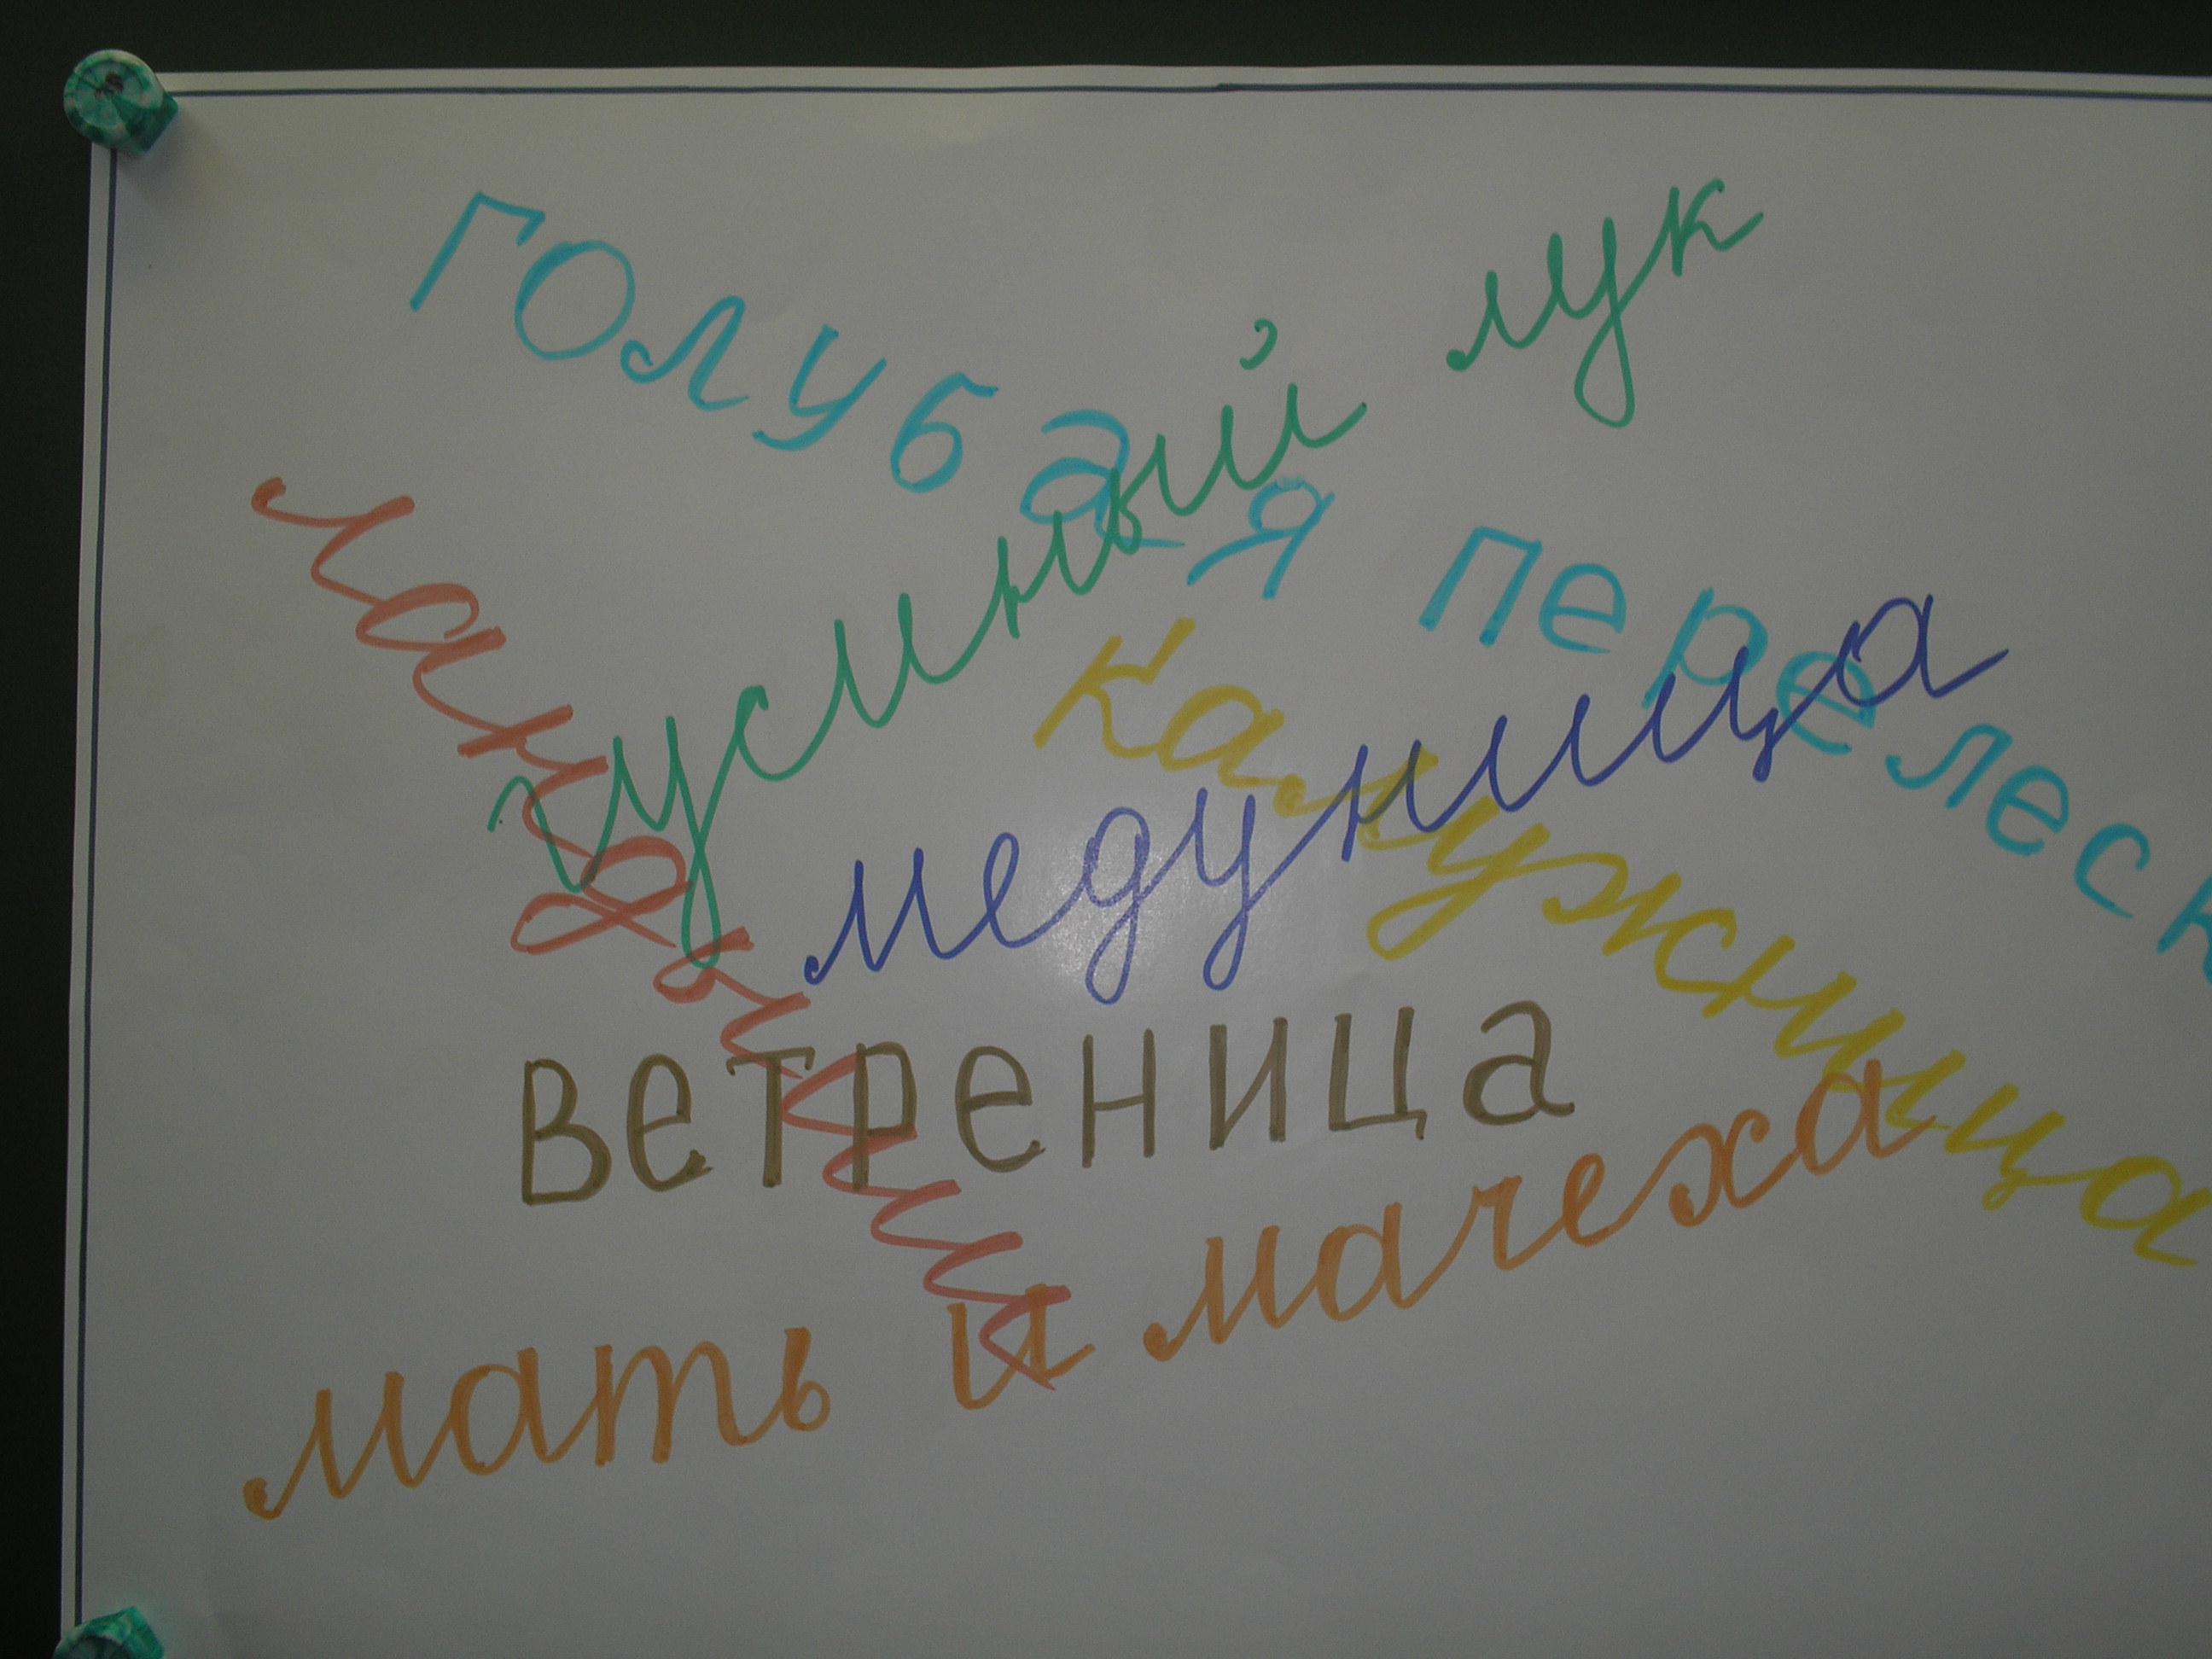 голубая перелеск
гусиный лук
ландыши
калужница
медуница
ветреница
мать и мачеха